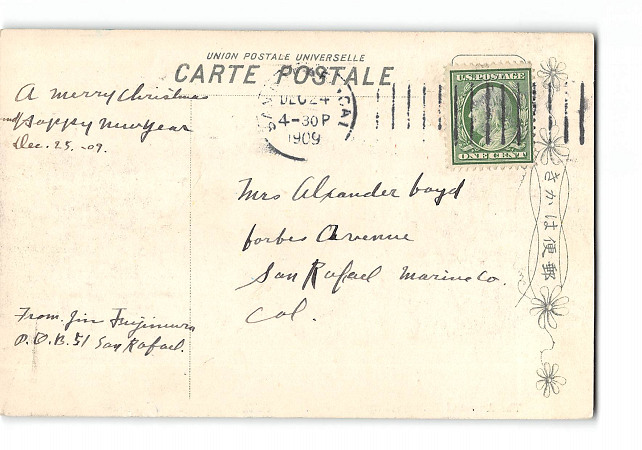 UNION POSTALE UNIVERSELLE
CARTE POSTALE
A merry Christmas
and Happy New Year
Dec. 25, -09.
DEC 24
4-30P
1909
CAL
U.S. POSTAGE
ONE CENT
Mrs Alxander Boyd
forbes Avenue
San Rafael Marine Co.
Cal.
From. Jim
P.O.B. 51 San Rafael.
きかは便郵